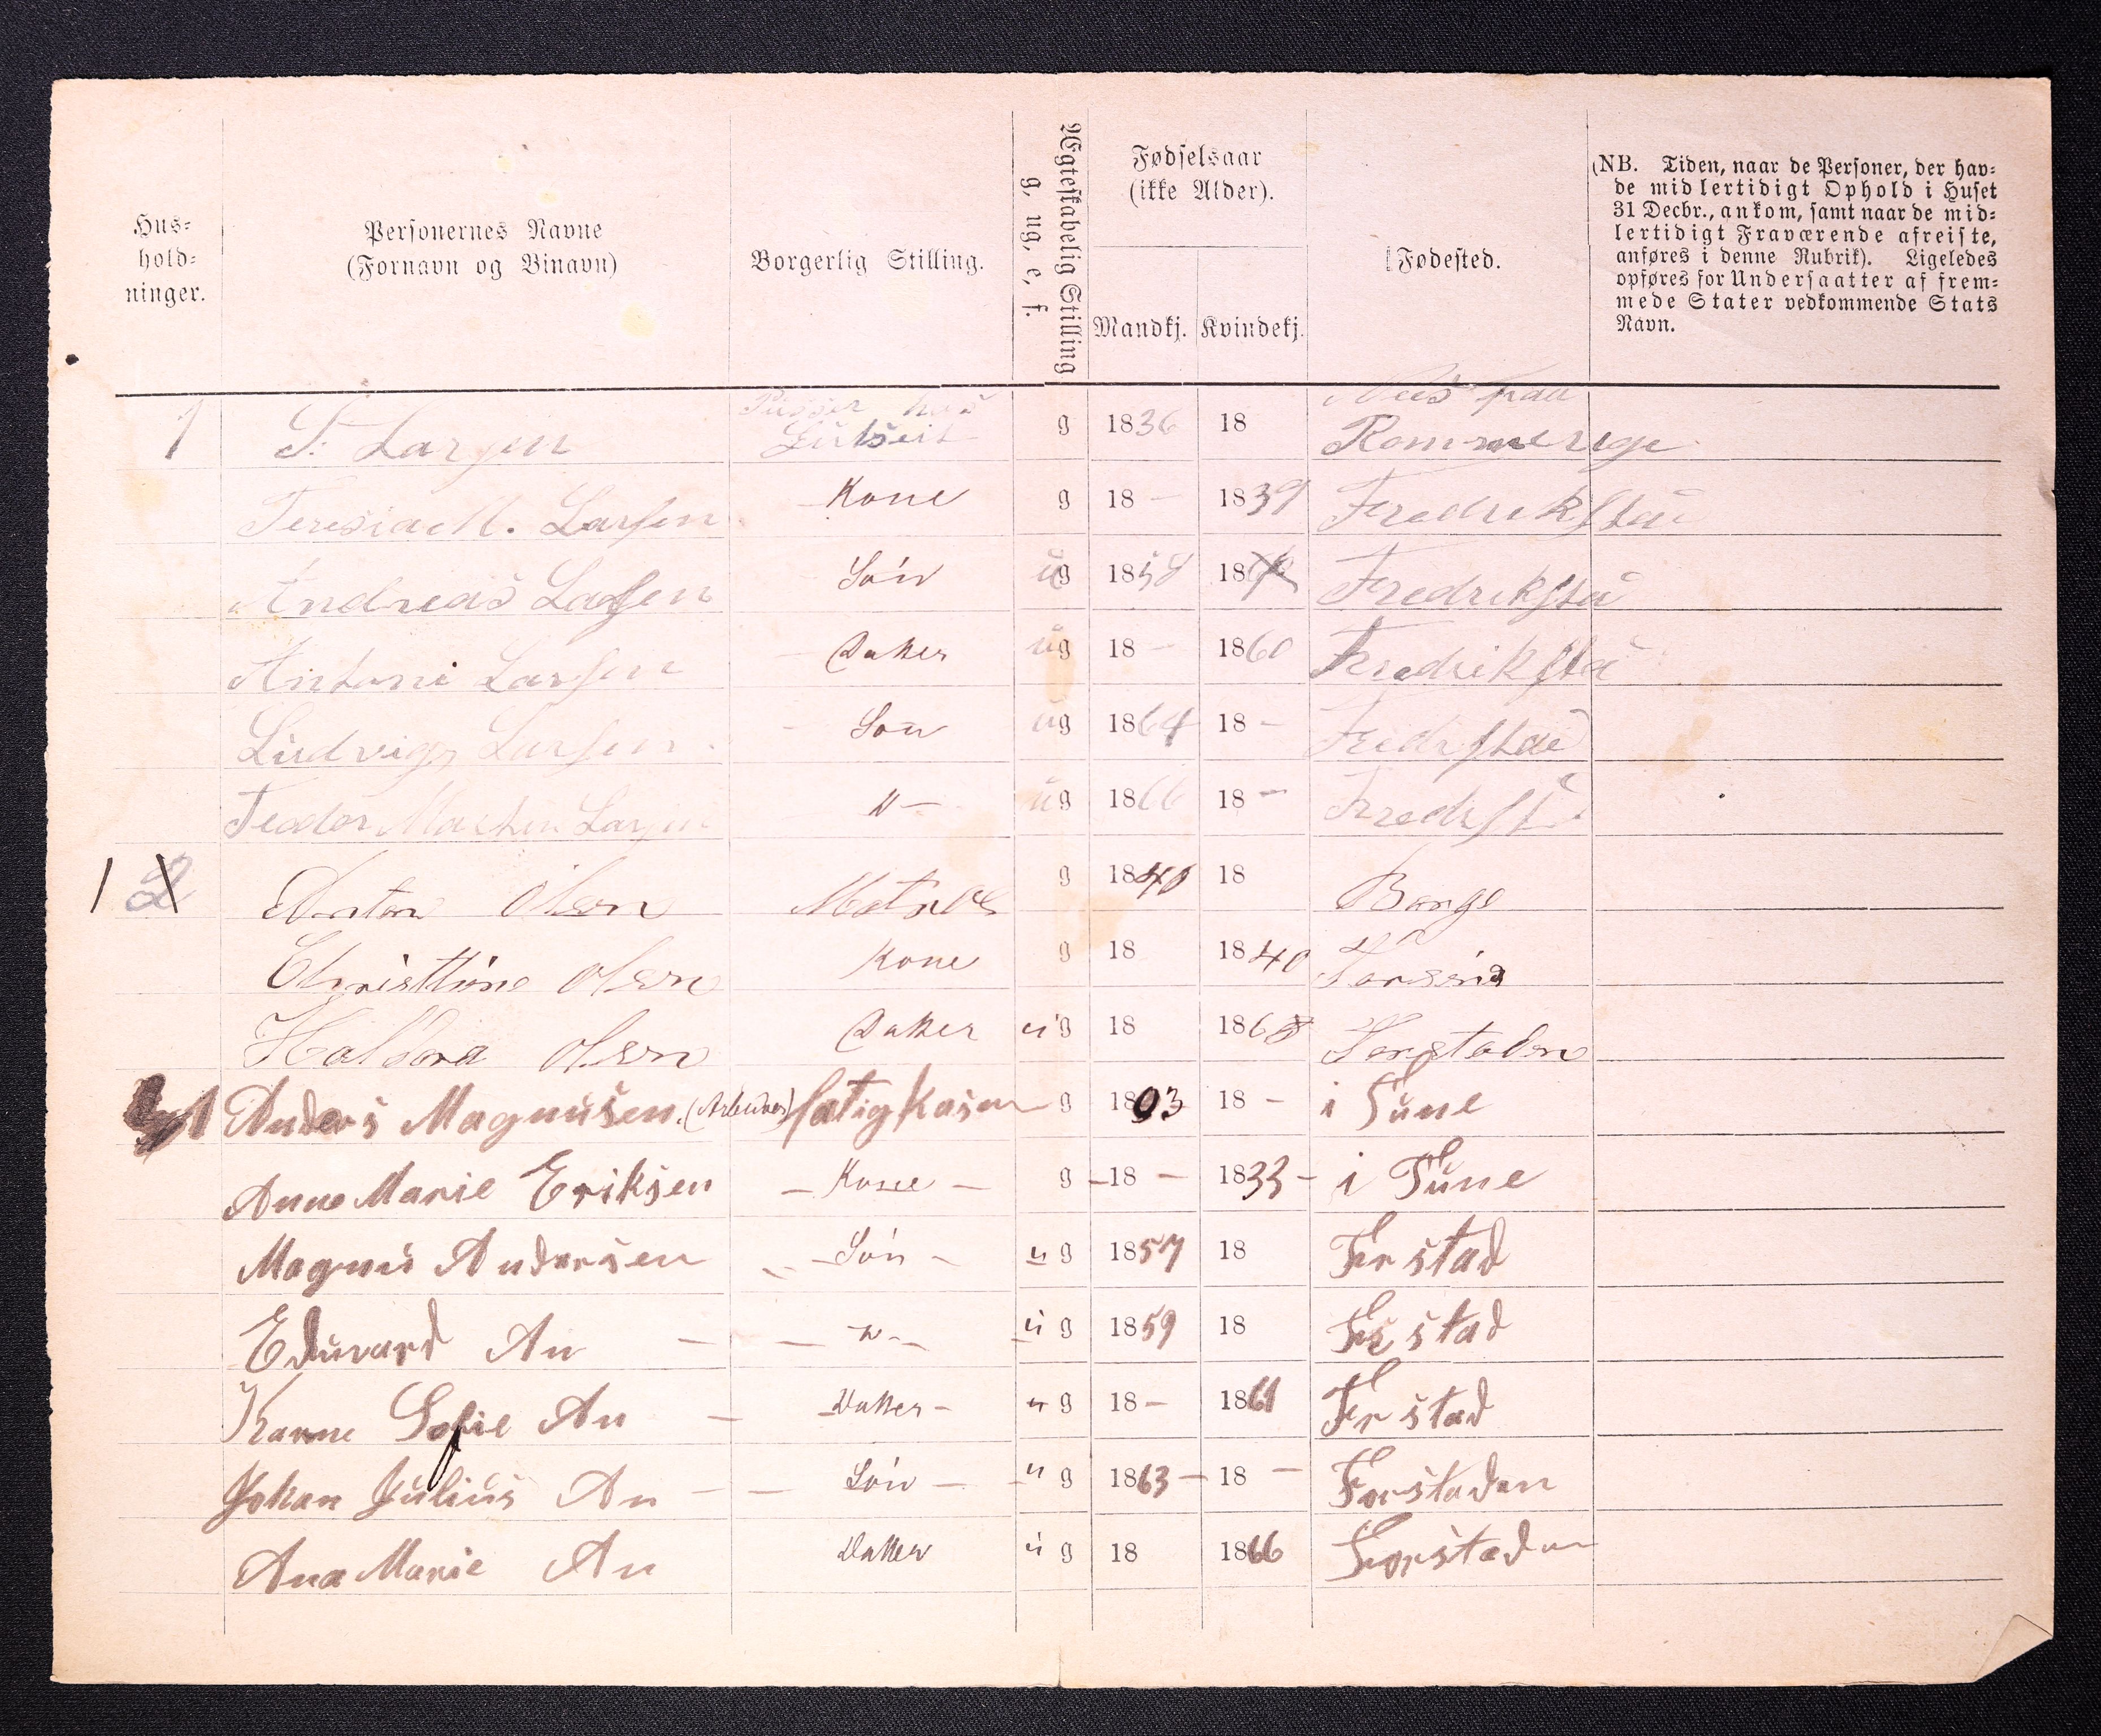 Hus-
hold-
ninger.
Personernes Navne
(Fornavn og Binavn)
Borgerlig Stilling.
Ægteskabelig Stilling
g, ug, e, f.
Fødselsaar
(ikke Alder).
Mandkj. Kvindekj.
Fødested.
(NB. Tiden, naar de Personer, der hav-
de midlertidigt Ophold i Huset
31 Decbr., ankom, samt naar de mid-
lertidigt Fraværende afreiste,
anføres i denne Rubrik). Ligeledes
opføres for Undersaatter af frem-
mede Stater vedkommende Stats
Navn.
1 S. Larsen g 1836 18 Rommerige
Teresia M. Larsen Kone g 18 - 1839 Fredrikstad
Andreas Larsen Søn ug 1858 18 Fredriksta
Antoni Larsen Datter ug 18 - 1860 Fredriksta
Ludvig Larsen. - Søn ug 1864 18 - Fredrstad
Teodor Martin Larsen " - ug 1866 18 - Fredrst
1 2 Anton Olsen Matros g 1840 18 Borge
Christtine Olsen Kone g 18 1840
Haldora Olsen Datter ug 18 1868 Forstaden
1 Anders Magnusen (Arbeider) fatigkasen g 1803 18 - i Tune
Anne Marie Eriksen - Kone - g - 18 - 1833 - i Tune
Magnus Andersen - Søn - ug 1857 18 Frstad
Eduvard An - - " - ug 1859 18 Frstad
Karne Sofie An - - Datter - ug 18 - 1861 Frstad
Johan Julius An - - Søn - ug 1863 - 18 - Forstaden
Ana Marie An Datter ug 18 1866 Forstaden